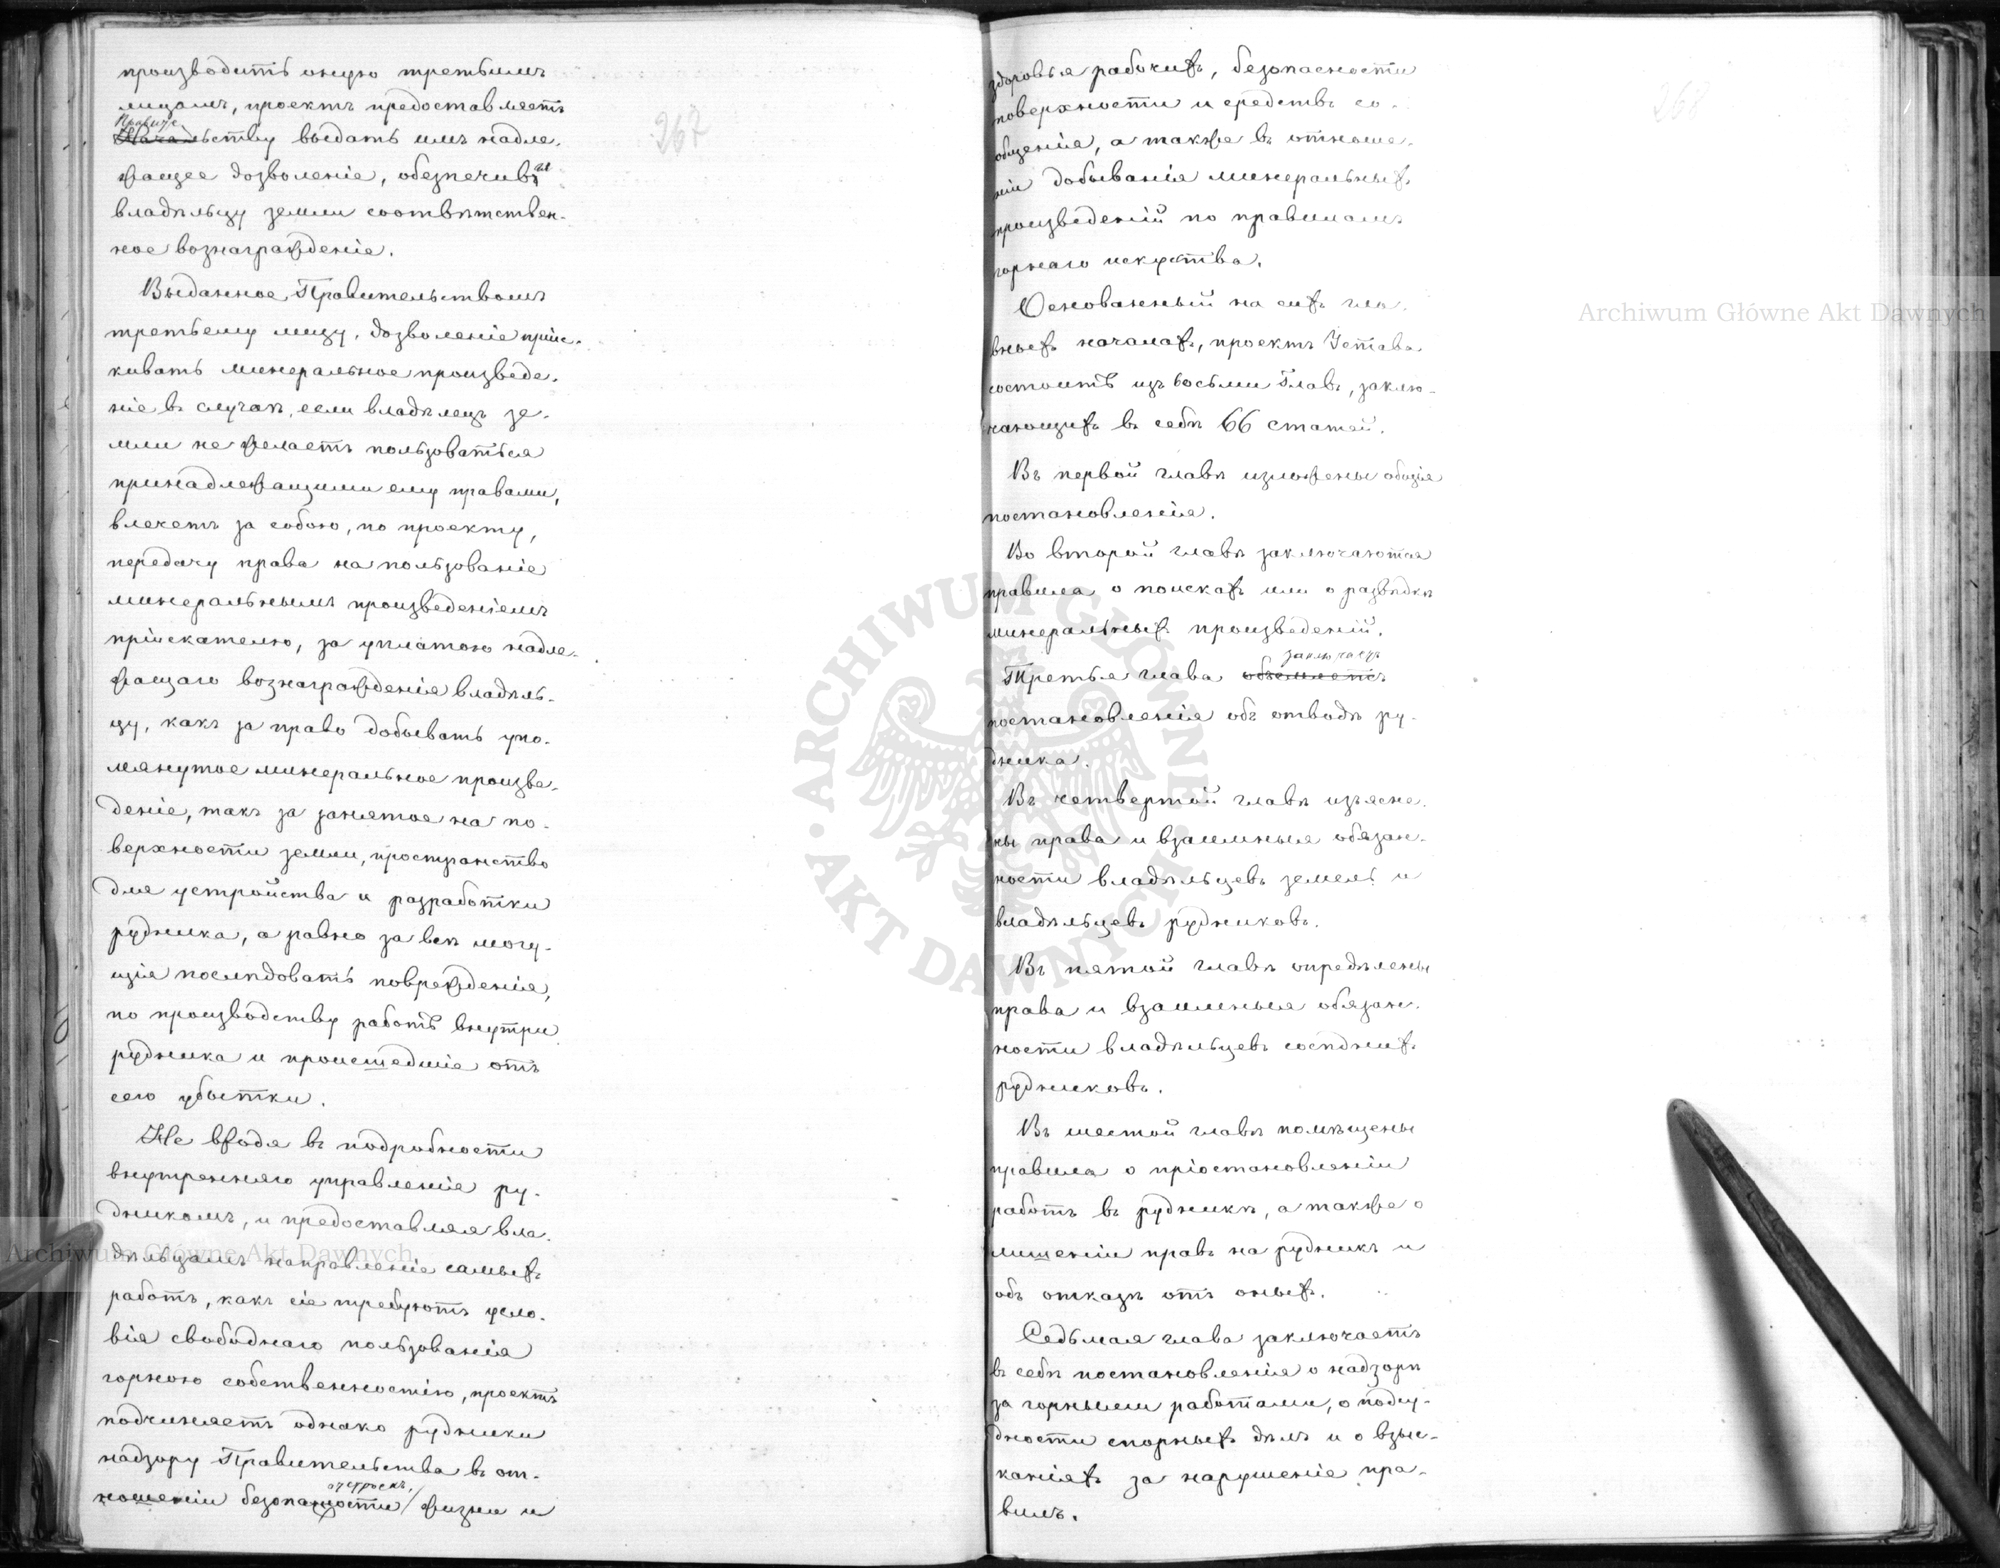 производить оную третьимъ
лицамъ, проектъ предоставляетъ
Правите
Начальству выдать имъ надле-
жащее дозволеніе, обезпечивъ
владѣльцу земли соотвѣтствен-
ное вознагражденіе.
Выданное Правительствомъ
третьему лицу, дозволеніе пріис-
кивать минеральное произведе-
ніе въ случаѣ, если владѣлецъ зе-
мли не желаетъ пользоваться
принадлежащими ему правами,
влечетъ за собою, по проекту,
передачу права на пользованіе
минеральнымъ произведеніемъ
пріискателю, за уплатою надле-
жащаго вознагражденія владѣль-
цу, какъ за право добывать упо-
мянутое минеральное произве-
деніе, такъ за занятое на по-
верхности земли, пространство
для устройства и разработки
рудника, а равно за всѣ могу-
щія послѣдовать поврежденія,
по производству работъ внутри
рудника и происшедшіе отъ
сего убытки.
Не входя въ подробности
внутренняго управленія ру-
дникомъ, и предоставляя вла-
дѣльцамъ направленіе самыхъ
работъ, какъ сіе требуютъ усло-
вія свободнаго пользованія
горною собственностію, проектъ
подчиняетъ однако рудники
надзору Правительства въ от-
ношеніи безопасности жизни и
267
здоровья рабочихъ, безопасности
поверхности и средствъ со-
общенія, а также въ отноше-
ніи добыванія минеральныхъ
произведеній по правиламъ
горнаго искуства.
Основанный на сихъ гла-
вныхъ началахъ, проектъ Устава
состоитъ изъ восьми Главъ, заклю-
чающихъ въ себѣ 66 статей.
Въ первой главѣ изложены общія
постановленія.
Во второй главѣ заключаются
правила о поискахъ или о развѣдкѣ
минеральныхъ произведеній.
заключаетъ
Третья глава объемлетъ
постановленія объ отводѣ ру-
дника.
Въ четвертой главѣ изъясне-
ны права и взаимныя обязан-
ности владѣльцевъ земель и
владѣльцевъ рудниковъ.
Въ пятой главѣ опредѣлены
права и взаимныя обязан-
ности владѣльцевъ сосѣднихъ
рудниковъ.
Въ шестой главѣ помѣщены
правила о пріостановленіи
работъ въ рудникѣ, а также о
лишеніи правъ на рудникъ и
объ отказѣ отъ оныхъ.
Седьмая глава заключаетъ
въ себѣ постановленія о надзорѣ
за горными работами, о подсу-
дности спорныхъ дѣлъ и о взыс-
каніяхъ за нарушеніе пра-
вилъ.
268
Archiwum Główne Akt Dawnych
Archiwum Główne Akt Dawnych
ARCHIWUM GŁÓWNE AKT DAWNYCH